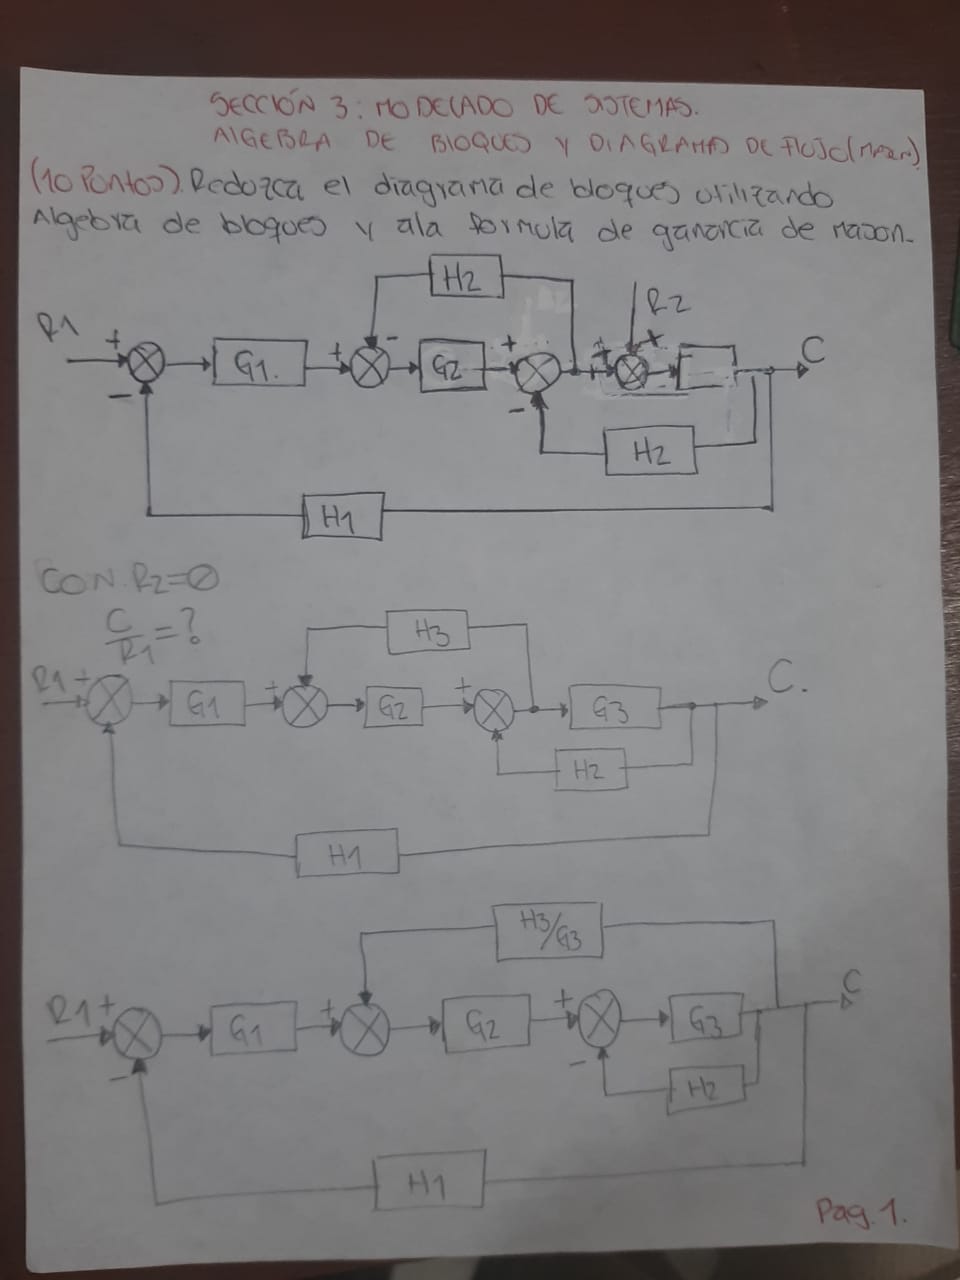 SECCIÓN 3: MODELADO DE SISTEMAS.
ALGEBRA DE BLOQUES Y DIAGRAMAS DE FLUJO (Mason)
(10 Pontos). Redozca el diagrama de bloques utilizando
Algebra de bloques y ala formula de ganancia de mason.
H2
R1 + - R2
+ G1. + G2 + + + C
- -
H2
H1
CON. R2=0
C/R1=?
H3
R1 + G1 + G2 + G3 C.
H2
H1
H3/G3
R1 + G1 + G2 + G3 C
- - H2
H1
Pag. 1.